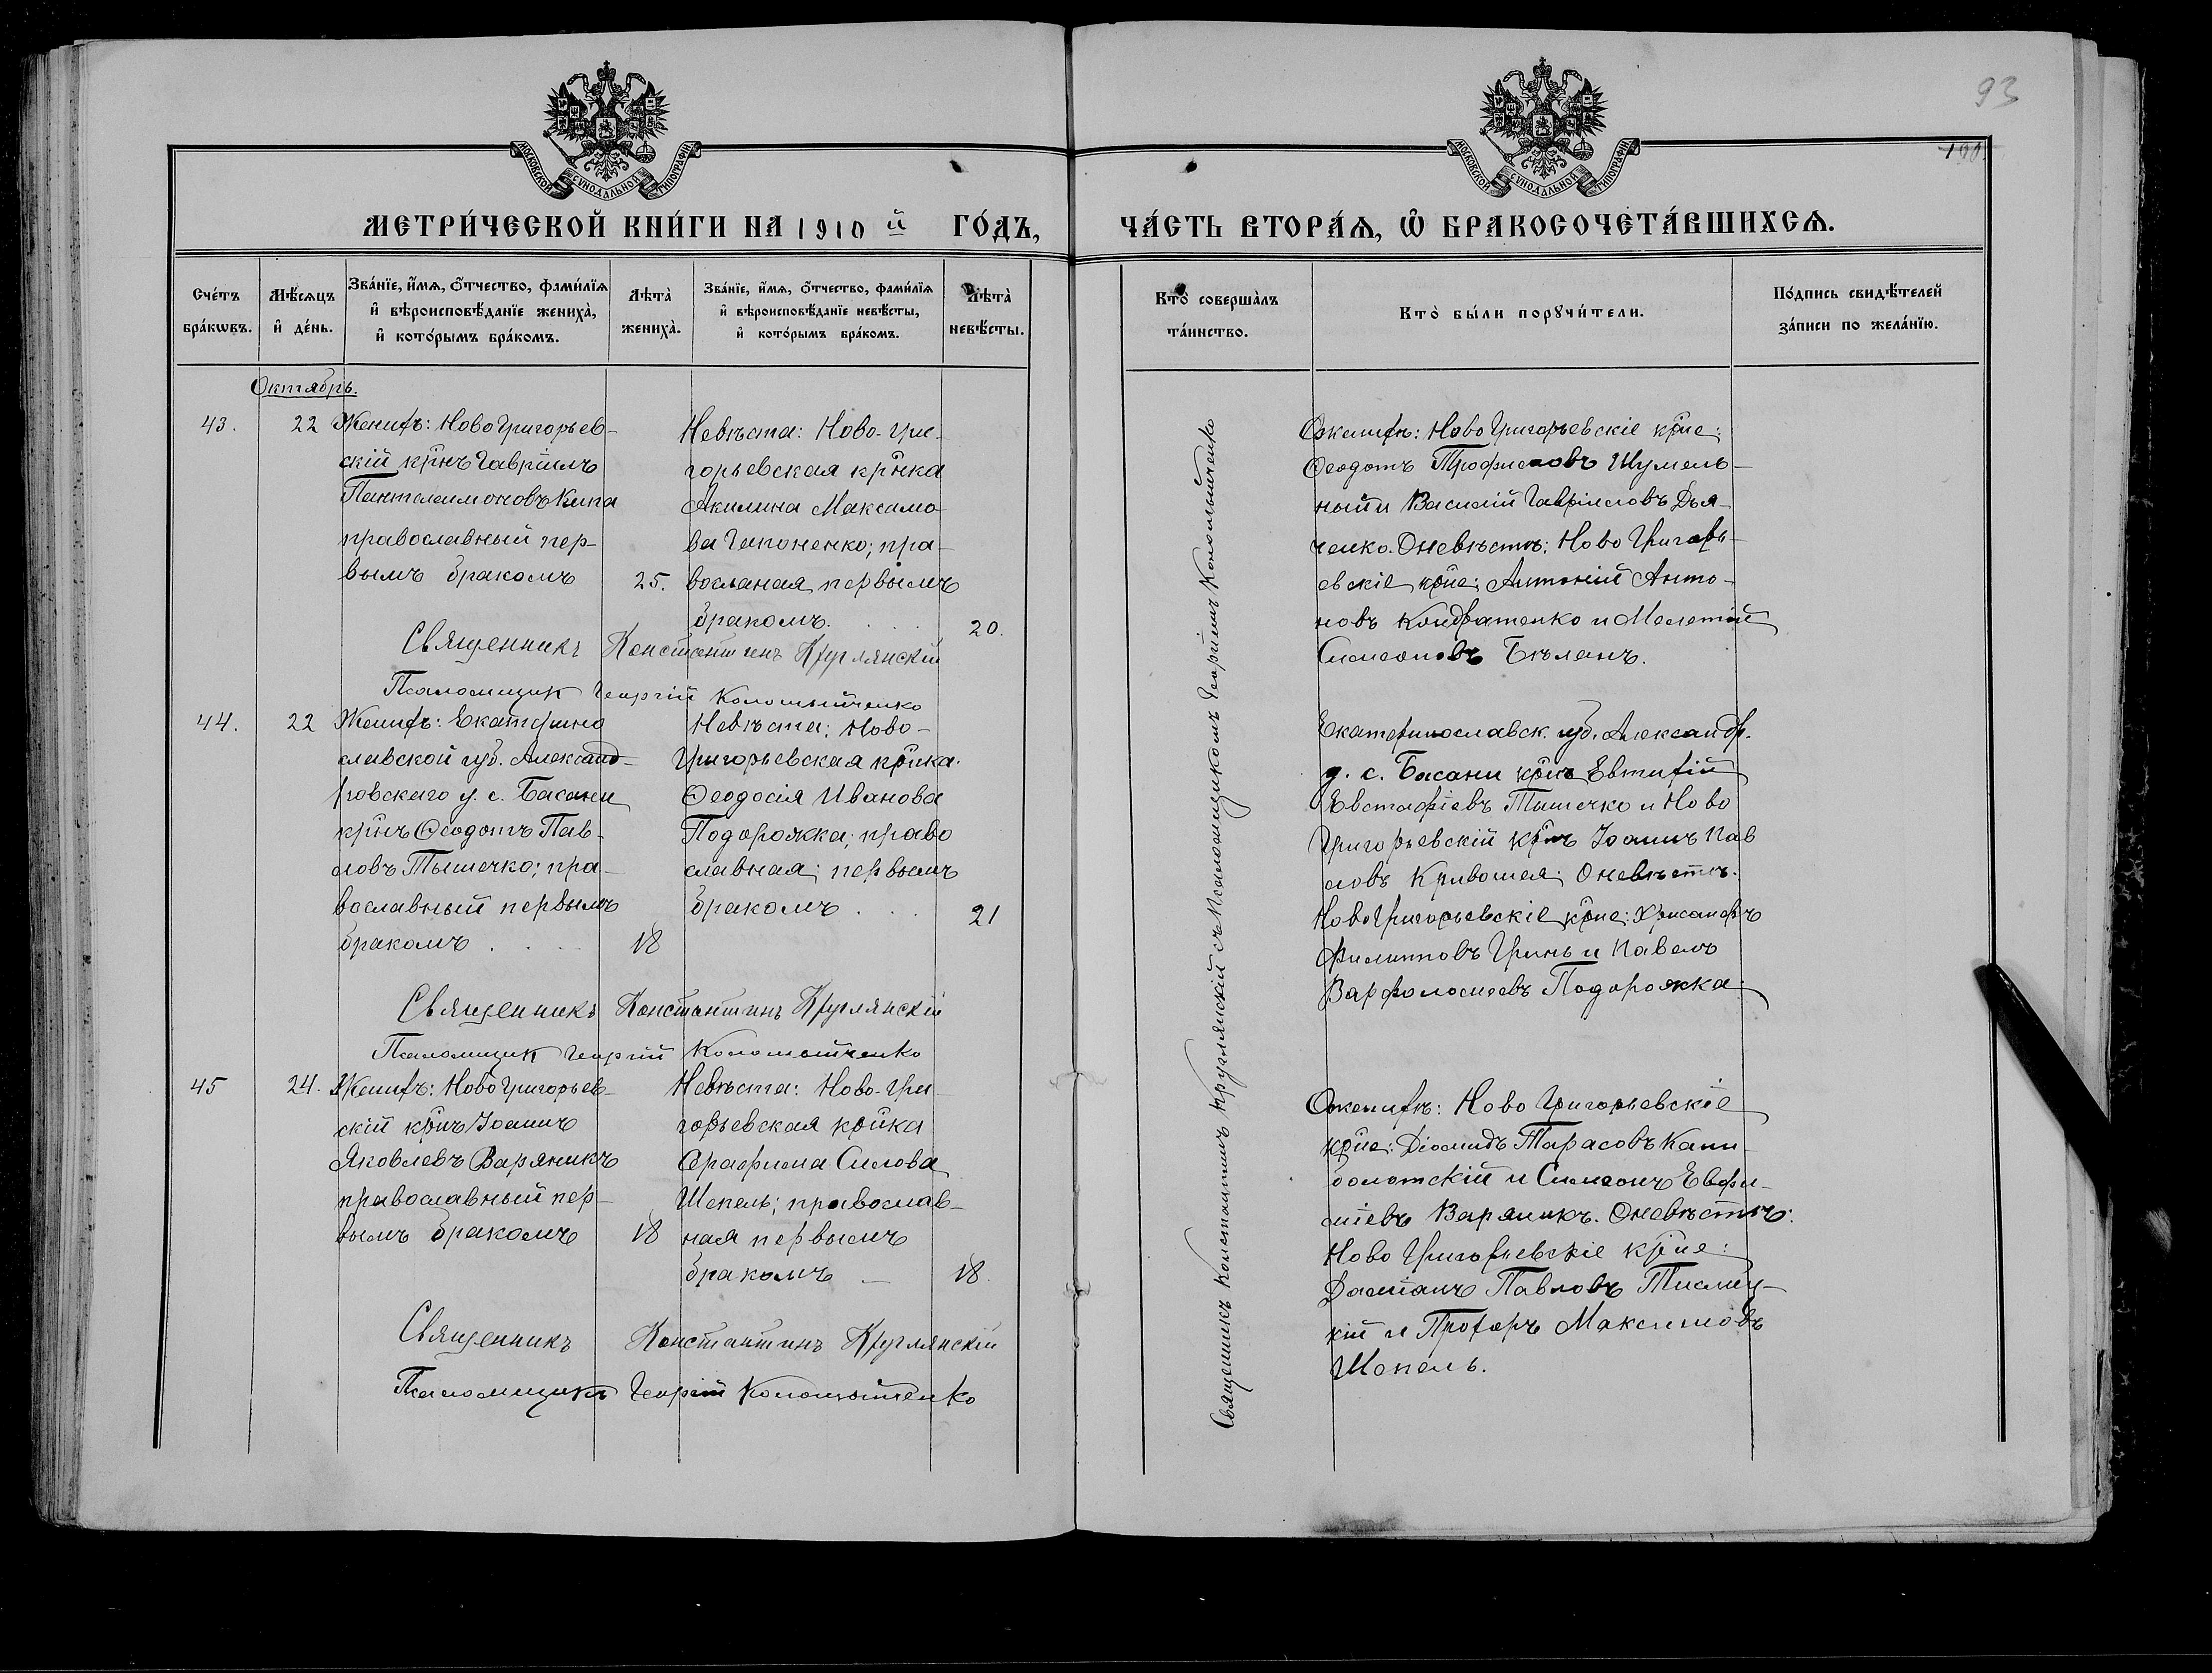 93
100
МОСКОВСКОЙ СУНОДАЛЬНОЙ ТИПОГРАФІИ
МОСКОВСКОЙ СУНОДАЛЬНОЙ ТИПОГРАФІИ
МЕТРИ́ЧЕСКОЙ КНИ́ГИ НА 1910 й ГО́ДЪ,
ЧА́СТЬ ВТОРА́Ѧ, Ѽ БРАКОСОЧЕТА́ВШИХСѦ.
Сче́тъ бра́кѡвъ.
Мѣ́сѧцъ и҆ де́нь.
Зва́нїе, и҆́мѧ, ѻ҆́тчество, фами́лїѧ и҆ вѣроисповѣ́данїе жениха̀, и҆ кото́рымъ бра́комъ.
Лѣта̀ жениха̀.
Зва́нїе, и҆́мѧ, ѻ҆́тчество, фами́лїѧ и҆ вѣроисповѣ́данїе невѣ́сты, и҆ кото́рымъ бра́комъ.
Лѣта̀ невѣ́сты.
Кто̀ соверша̀лъ та́инство.
Кто̀ бы́ли порꙋчи́тели.
По́дпись свидѣ́телей за́писи по жела́нїю.
Октябрь.
43.
22
Женихъ: Ново Григорьев-
скій крнъ Гавріилъ
Пантелеимоновъ Кипа
православный пер-
вымъ бракомъ
25.
Невѣста: Ново-Гри-
горьевская крнка
Акилина Максимо-
ва Гапоненко; пра-
вославная первымъ
бракомъ.
20.
Священникъ Константинъ Круглянскій
Псаломщикъ Георгій Коломыйченко
44.
22
Женихъ: Екатерино
славской губ. Александ-
ровскаго у. с. Басани
крнъ Ѳеодотъ Пав-
ловъ Тышечко; пра-
вославный первымъ
бракомъ
18
Невѣста: Ново-
Григорьевская крнка
Ѳеодосія Иванова
Подорожка; право
славная; первымъ
бракомъ
21
Священникъ Константинъ Круглянскій
Псаломщикъ Георгій Коломыйченко
45
24.
Женихъ: Ново Григорьев-
скій крнъ Іоаннъ
Яковлевъ Варяникъ
православный пер-
вымъ бракомъ
18
Невѣста: Ново-Гри-
горьевская крнка
Силова
православ-
ная первымъ
бракомъ
18.
Священникъ Константинъ Круглянскій
Псаломщикъ Георгій Коломыйченко
Священникъ Константинъ Круглянскій съ псаломщикомъ Георгіемъ Коломыйченко
Ожених: Ново Григорьевскіе крне:
Ѳеодотъ Трофимовъ Шумель-
ный и Василій Гавріиловъ Дья-
ченко. Оневѣстѣ: Ново Григорь-
евскіе крне: Антоній Анто-
новъ Кондратенко и Мелетій
Симеоновъ Бѣланъ.
Екатеринославск. губ. Александр.
у. с. Басани крнъ Евтихій
Евстафіевъ Тышечко и Ново
Григорьевскій крнъ Іоаннъ Пав
ловъ Кривошея; Оневѣстѣ.
Ново Григорьевскіе крне: Хрисанфъ
Филипповъ Гринь и Павелъ
Варфоломеевъ Подорожка.
Ожених: Ново Григорьевскіе
крне: Діомидъ Тарасовъ Капи
болотскій и Симеонъ Евфи-
міевъ Варяникъ. Оневѣстѣ:
Ново Григорьевскіе крне:
Даміанъ Павловъ
и Прохоръ Максимовъ